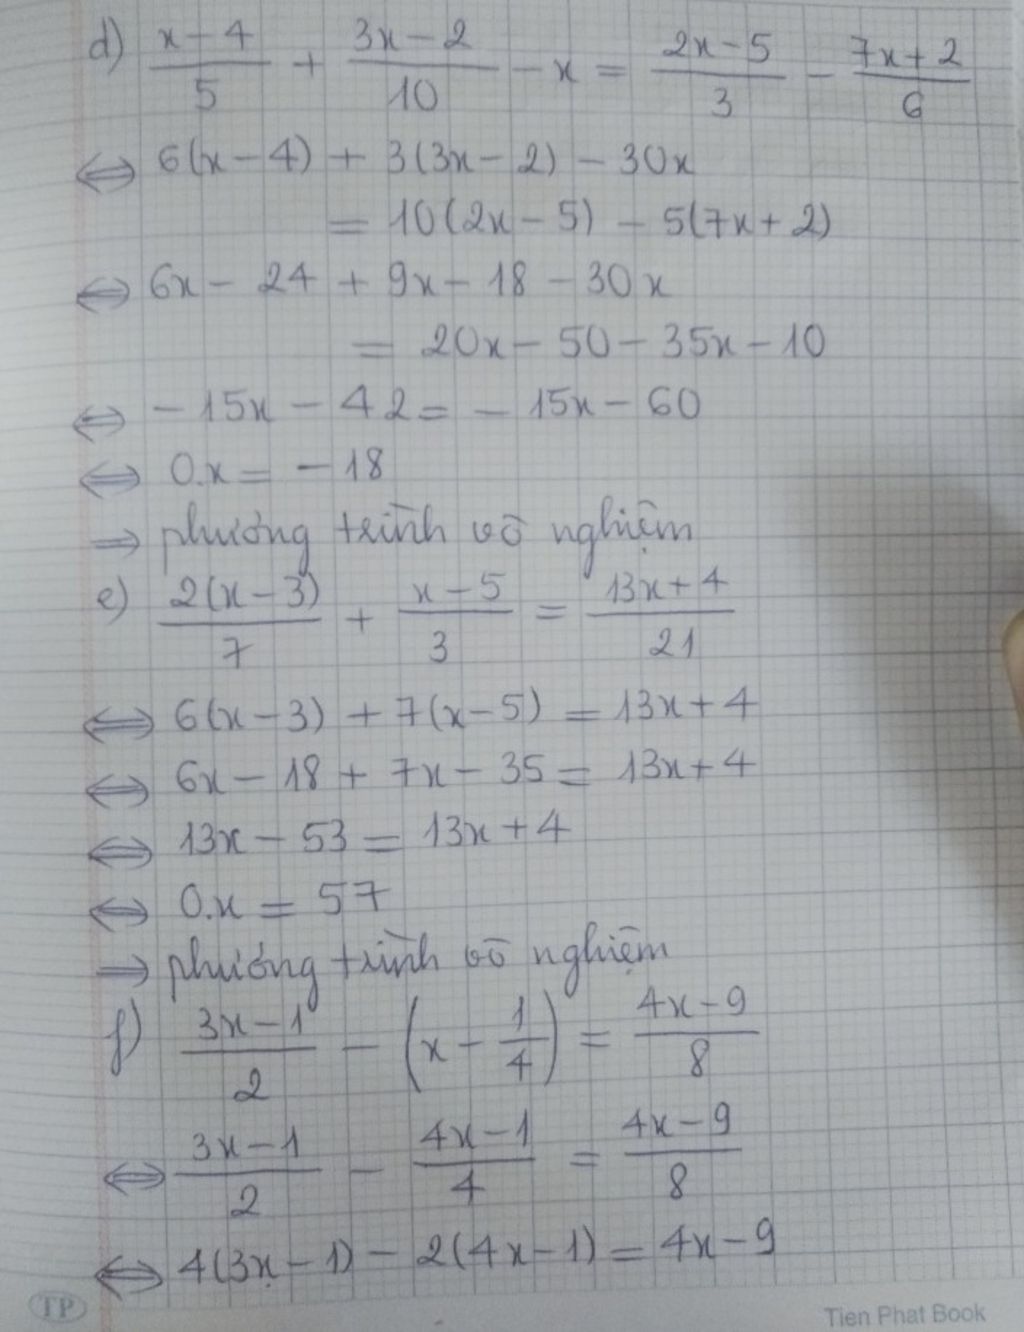 d) \frac{x-4}{5} + \frac{3x-2}{10} - x = \frac{2x-5}{3} - \frac{7x+2}{6}
⇔ 6(x-4) + 3(3x-2) - 30x
= 10(2x-5) - 5(7x+2)
⇔ 6x - 24 + 9x - 18 - 30x
= 20x - 50 - 35x - 10
⇔ -15x - 42 = -15x - 60
⇔ 0.x = -18
⇒ phương trình vô nghiệm
e) \frac{2(x-3)}{7} + \frac{x-5}{3} = \frac{13x+4}{21}
⇔ 6(x-3) + 7(x-5) = 13x+4
⇔ 6x - 18 + 7x - 35 = 13x+4
⇔ 13x - 53 = 13x+4
⇔ 0.x = 57
⇒ phương trình vô nghiệm
f) \frac{3x-1}{2} - (x - \frac{1}{4}) = \frac{4x-9}{8}
⇔ \frac{3x-1}{2} - \frac{4x-1}{4} = \frac{4x-9}{8}
⇔ 4(3x-1) - 2(4x-1) = 4x-9
TP
Tien Phat Book